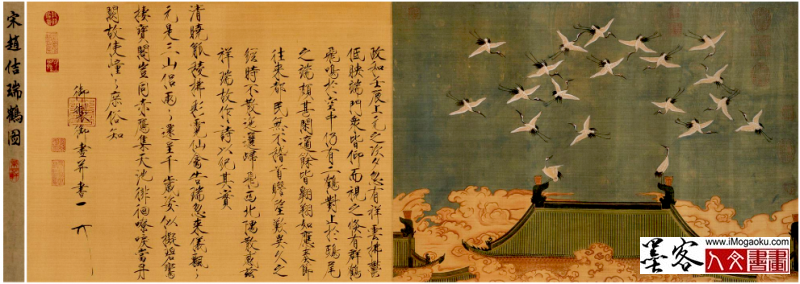 政和壬辰上元之次夕忽有祥雲拂鬱
低映端門眾皆仰而視之倏有群鶴
飛鳴於空中仍有二鶴對止於鴟尾
之端頗甚閑適餘皆翱翔如應奏節
往來都民無不稽首瞻望歎異久之
經時不散迤邐歸飛西北隅散感茲
祥瑞故作詩以紀其實
清曉觚稜拂彩霓仙禽告瑞忽來儀飄〻
元是三山侶兩〻還呈千歲姿似擬碧鸞
棲寶閣豈同赤雁集天池徘徊嘹唳當丹
闕故使憧〻庶俗知
御製御畫并書
宋趙佶瑞鶴圖
墨客
www.iMogaoku.com
人文書畫